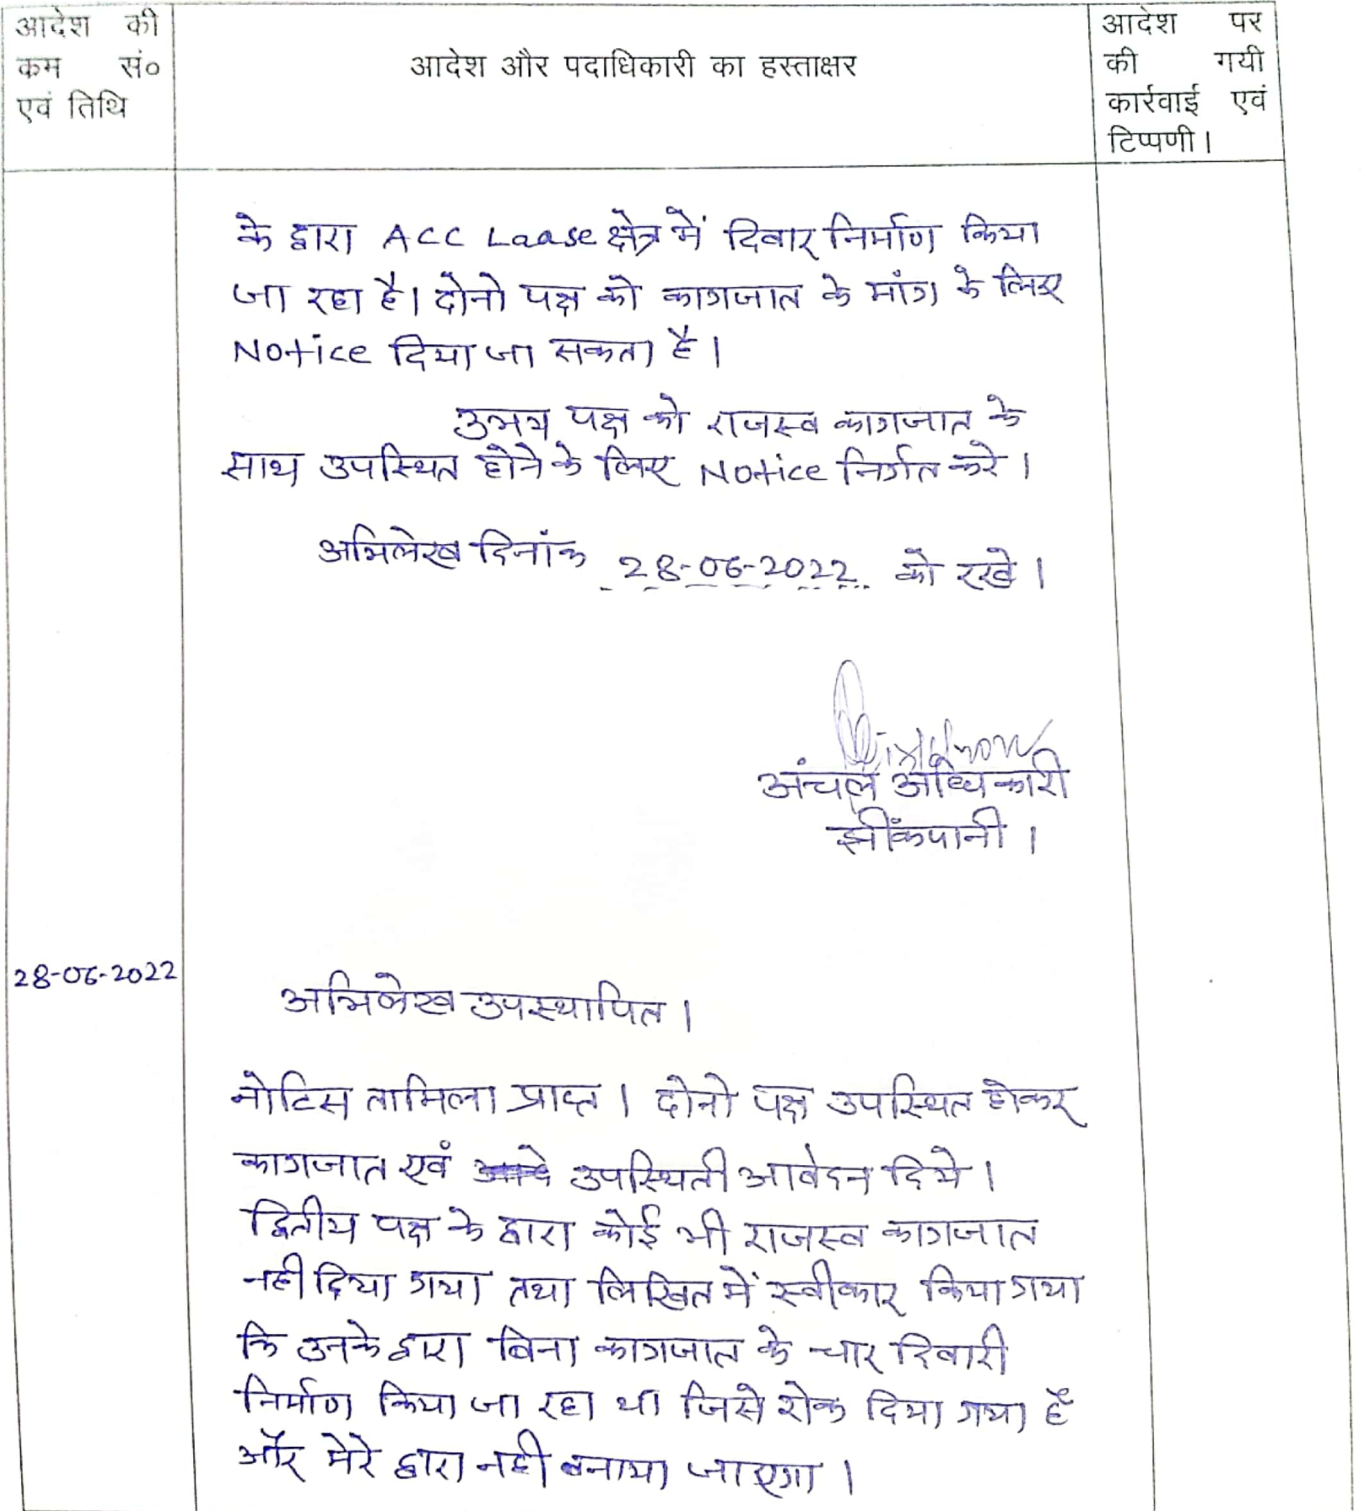 आदेश की
कम सं०
एवं तिथि
आदेश और पदाधिकारी का हस्ताक्षर
आदेश पर
की गयी
कार्रवाई एवं
टिप्पणी।
के द्वारा ACC Laase क्षेत्र में दिवार निर्माण किया
जा रहा है। दोनो पक्ष को कागजात के मांग के लिए
Notice दिया जा सकता है।
उभय पक्ष को राजस्व कागजात के
साथ उपस्थित होने के लिए Notice निर्गत करे।
अभिलेख दिनांक 28-06-2022 को रखे।
अंचल अधिकारी
झींकपानी।
28-06-2022
अभिलेख उपस्थापित।
नोटिस तामिला प्राप्त। दोनो पक्ष उपस्थित होकर
कागजात एवं उपस्थिती आवेदन दिये।
द्वितीय पक्ष के द्वारा कोई भी राजस्व कागजात
नही दिया गया तथा लिखित में स्वीकार किया गया
कि उनके द्वारा बिना कागजात के चार दिवारी
निर्माण किया जा रहा था जिसे रोक दिया गया है
और मेरे द्वारा नही बनाया जाएगा।